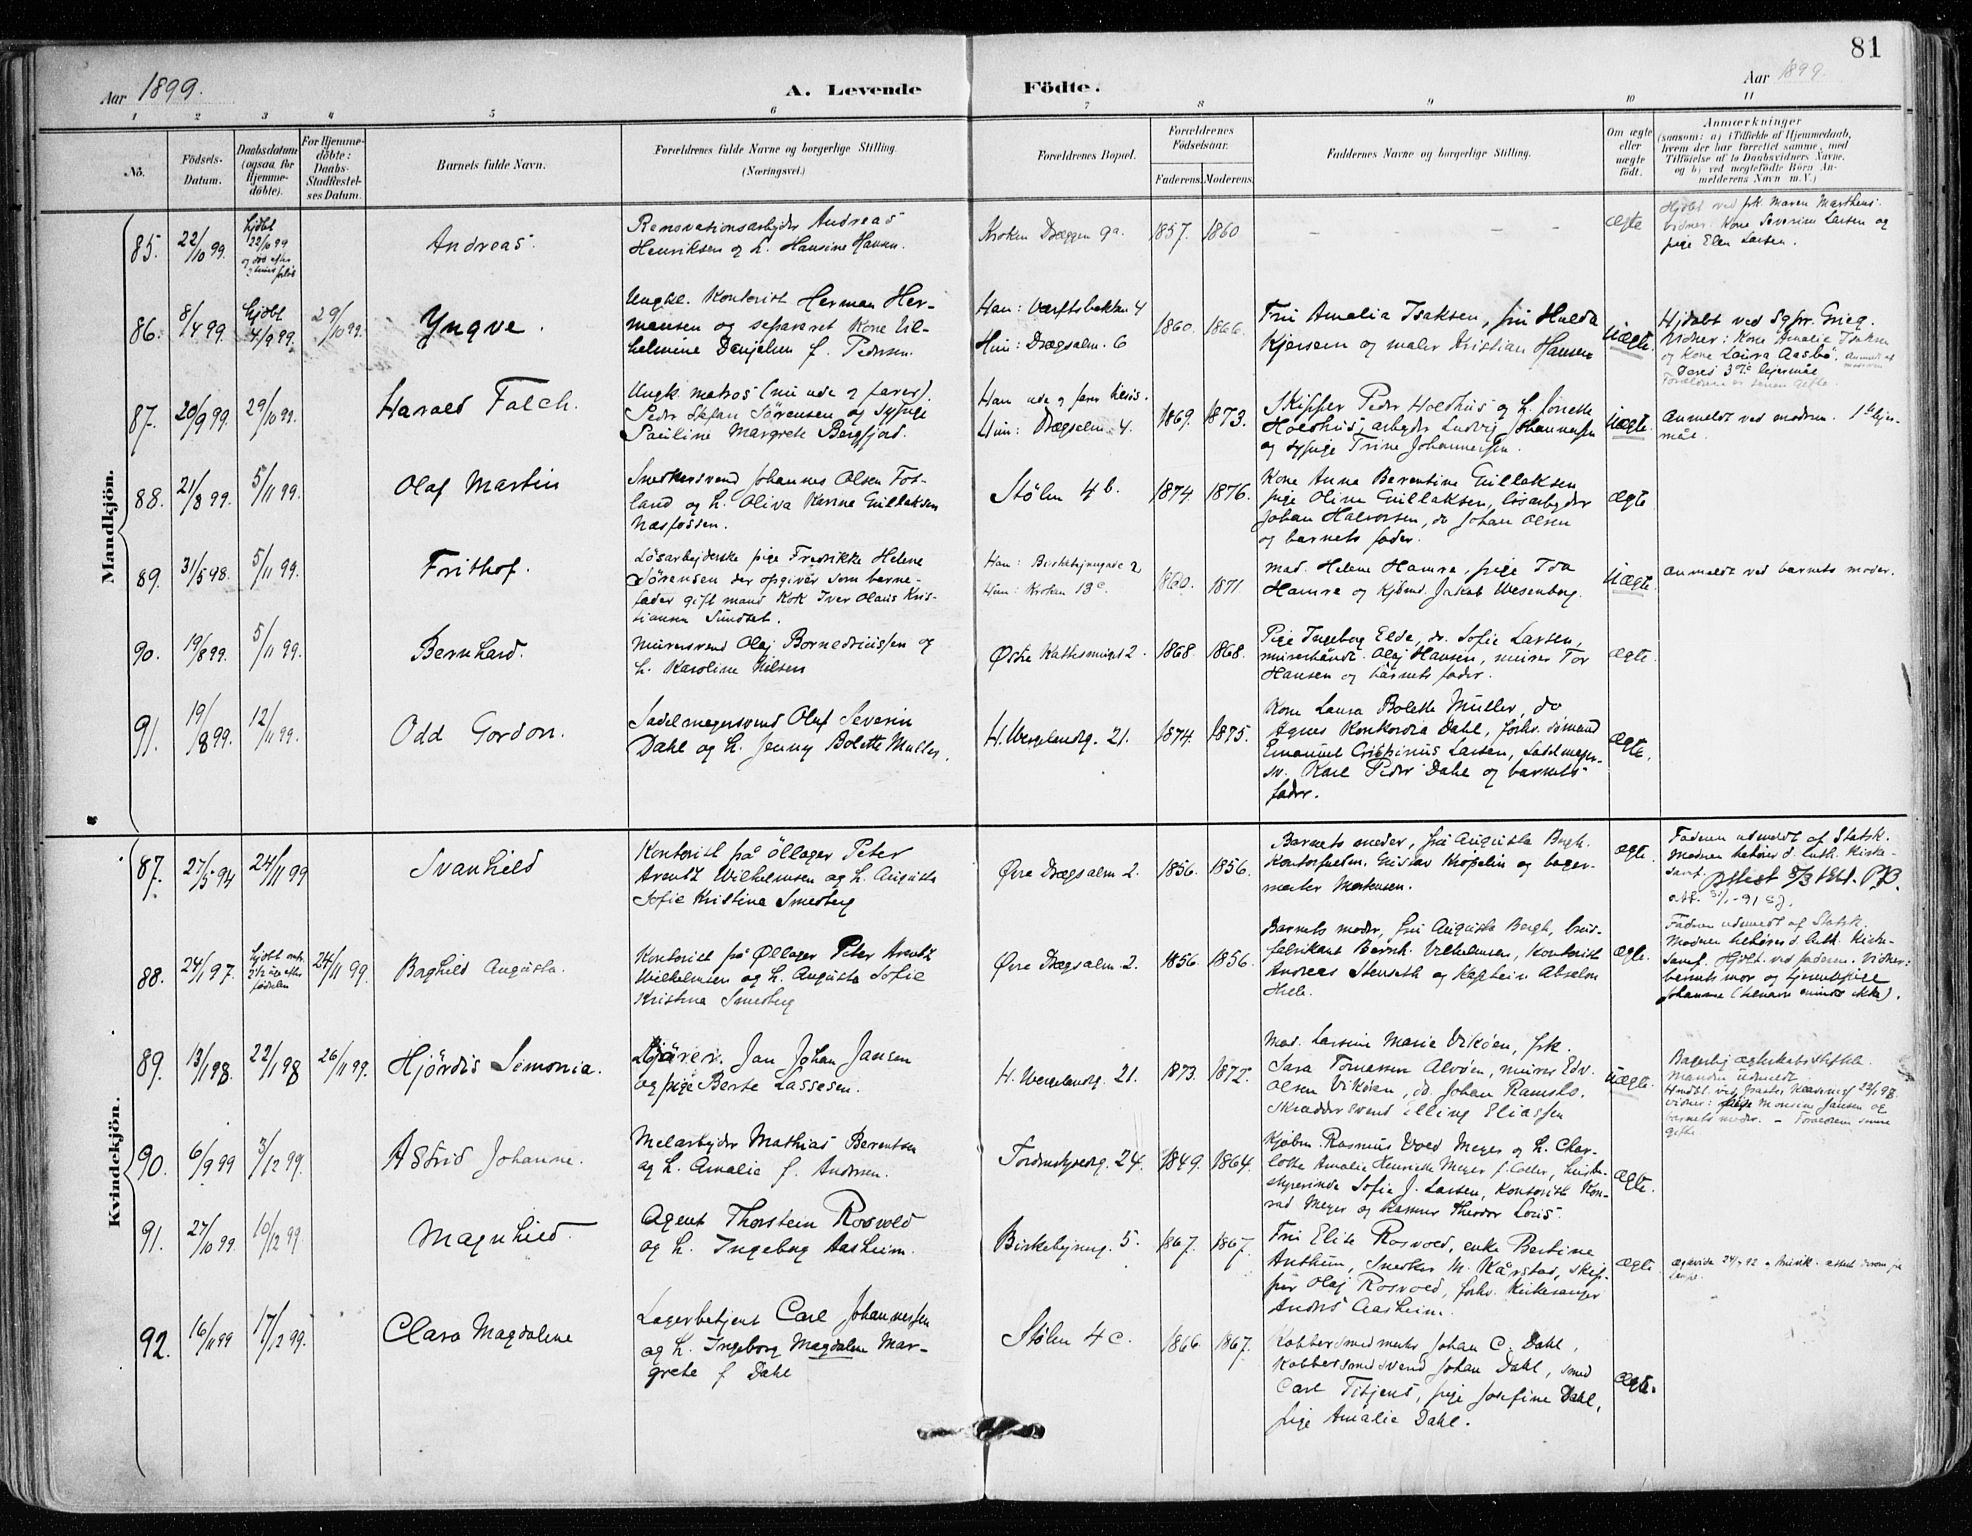 81
Aar 1899.
A. Levende Födte.
Aar 1899.
1 2 3 4 5 6 7 8 9 10 11
No.
Födsels-Datum.
Daabsdatum (ogsaa for Hjemmedöbte).
For Hjemmedöbte: Daabs-Stadfæstelses Datum.
Barnets fulde Navn.
Forældrenes fulde Navne og borgerlige Stilling.
(Næringsvei.)
Forældrenes Bopæl.
Forældrenes Födselsaar.
Faderens. Moderens.
Faddernes Navne og borgerlige Stilling.
Om ægte eller uægte födt.
Anmærkninger
(saasom: a) i Tilfælde af Hjemmedaab,
hvem der har forrettet samme, med
Tilföielse af to Daabsvidners Navne,
og b) ved uægtefödte Börn Anmelderens Navn m. V.)
Mandkjön.
85. 22/10 99. Hjdbt 22/10 99
Andreas.
Renovationsarbejder Andreas
Henriksen og h. Hansine Hansen.
Kroken Dræggen 9a. 1857. 1860
– – – –
ægte
Hjdbt ved frk Maren Marthens.
Vidner: Kone Severine Larsen og
pige Elen Larsen.
86. 8/4 99. Hjdbt 4/9 99. 29/10 99.
Yngve.
Ungkl. Kontorist Herman Her-
mansen og separeret Kone Vil-
helmine Danjelsen f. Pedersen.
Han: Værftsbakken 4
Hun: Drægsalm. 6
1860. 1866.
Fru Amalia Isaksen, fru Hulda
Kjersem og maler Kristian Hansen
Uægte
Hjdøbt ved Sgpr. Grieg.
Vidner: Kone Amalie Isaksen
og Kone Laura Aasbø.
Deres 3die lejermål
Forældrene er senere gifte.
87. 20/9 99. 29/10 99.
Harald Falch.
Ungk. matros (nu ude og farer).
Peder Stefan Sørensen og sypige
Pauline Margrete Bergfjord.
Han ude og farer
Hun: Drægsalm. 4.
1869. 1873.
Skipper Peder Holdhus og h. Jonette
Holdhus, arbejder Ludvig Johannessen
og sypige Trine Johannessen.
uægte
Anmeldt ved modren. 1ste lejer-
mål.
88. 21/8 99. 5/11 99.
Olaf Martin
Snedkersvend Johannes Olsen Fos-
land og h. Oliva Karina Gullaksen
Næsfossen.
Stølen 4b. 1874 1876.
Kone Anna Berentine Gullaksen
pige Oline Gullaksen, løsarbejder
Johan Halvorsen, do Johan Olsen
og barnets fader.
ægte
89. 31/5 98. 5/11 99.
Frithof.
Løsarbejderske pige Fredrikke Helene
Sørensen der opgiver som barne-
fader gift mand Kok Iver Olaus Kris-
tiansen Sundset.
Han: Birkebejnergade 2
Hun: Kroken 13c.
1860. 1871
mad. Helene Hamre, pige Ida
Hamre og Kjøbmd. Jakob Wesenberg.
Uægte.
Anmeldt ved barnets moder.
90. 19/8 99. 5/11 99.
Bernhard.
Murersvend Olaj Bornedriussen og
h. Karoline Nilsen
Østre Kattesmuget 2. 1868 1868.
Pige Ingeborg Elda, do. Sofie Larsen,
murerhåndt. Olaj Hansen, murer Tor
Hansen og barnets fader.
ægte.
91. 19/8 99. 12/11 99.
Odd Gordon.
Sadelmagersvend Olaf Severin
Dahl og h. Jenny Bolette Müller.
H. Wergelandsg. 21. 1874. 1875.
Kone Laura Bolette Müller, do
Agnes Konkordia Dahl, forhv. sømand
Emanuel Crispinus Larsen, Sadelmager-
sv. Karl Peder Dahl og barnets
fader.
ægte.
Kvindekjön.
87. 27/5 94 24/11 99
Svanhild
Kontorist på øllager Peter
Arentz Wilhelmsen og h. Augusta
Sofie Kristina Smedberg
Øvre Drægsalm 2. 1856. 1856.
Barnets moder, fru Augusta Bergh.
Kontorfuldm. Gustav Kopelin og bager-
mester Mortensen.
ægte.
Faderen udmeldt af Statsk.
Modren tilhører d. luth. Kirke-
samf. Attest 8/3
88. 24/1 97. 24/11 99.
Baghild Augusta.
Kontorist på Øllager Peter Arentz
Wilhelmsen og h. Augusta Sofie
Kristina Smedberg
Øvre Drægsalm. 2. 1856. 1856.
Barnets moder, fru Augusta Bergh, brus-
fabrikant Bernh. Vilhelmsen, Kontorist
Andreas Stenseth og Kaptein Absalon
Hile.
ægte.
Faderen udmeldt af Statsk.
Modren tilhører d. luth. Kirke-
samf. Hjdbt. ved faderen. Vidner:
barnets mor og tjenestepige
Johanne (tilnavn mindes ikke).
89. 13/1 98. 22/1 98 26/11 99.
Hjördis Simonia.
Jan Johan Jansen
og pige Berte Lassesen.
H. Wergelandsg. 21. 1873. 1872.
Mad. Larsine Marie Vikøen, frk.
Sara Tomassen Alvøen, murer Edv.
Olsen Vikøen, do. Johan Ramslo.
Skræddersvend Elling Eliassen
uægte.
Manden udmeldt.
90. 6/9 99 3/12 99.
Astrid Johanne.
Melarbejder Mathias Berentsen
og h. Amalie f. Andersen.
Tordenskjoldsg. 24. 1849. 1864.
Kjøbm. Rasmus Woed Meyer og h. Char-
lotte Amalie Henriette Meyer
Sofie J. Larsen, Kontorist Kon-
rad Meyer og Rasmus Theodor Loris.
ægte.
91. 27/10 99. 10/12 99
Magnhild.
Agent Thorstein Rosvold
og h. Ingeborg Aasheim.
Birkebejnerg. 5. 1867. 1867.
Fru Elise Rosvold, enke Bertine
Anthun, Snedker M. Kårstad, skip-
per Olaj Rosvold, forhv. Kirkesanger
Anders Aasheim.
ægte
92. 16/11 99 17/12 99.
Clara Magdalene
Lagerbetjent Carl Johannessen
og h. Ingeborg Magdalene Mar-
grete f Dahl
Stølen 4c. 1866 1867.
Kobbersmedmester Johan C. Dahl,
Kobbersmedsvend Johan Dahl, smed
Carl Titjens, pige Josefine Dahl,
pige Amalie Dahl.
ægte.